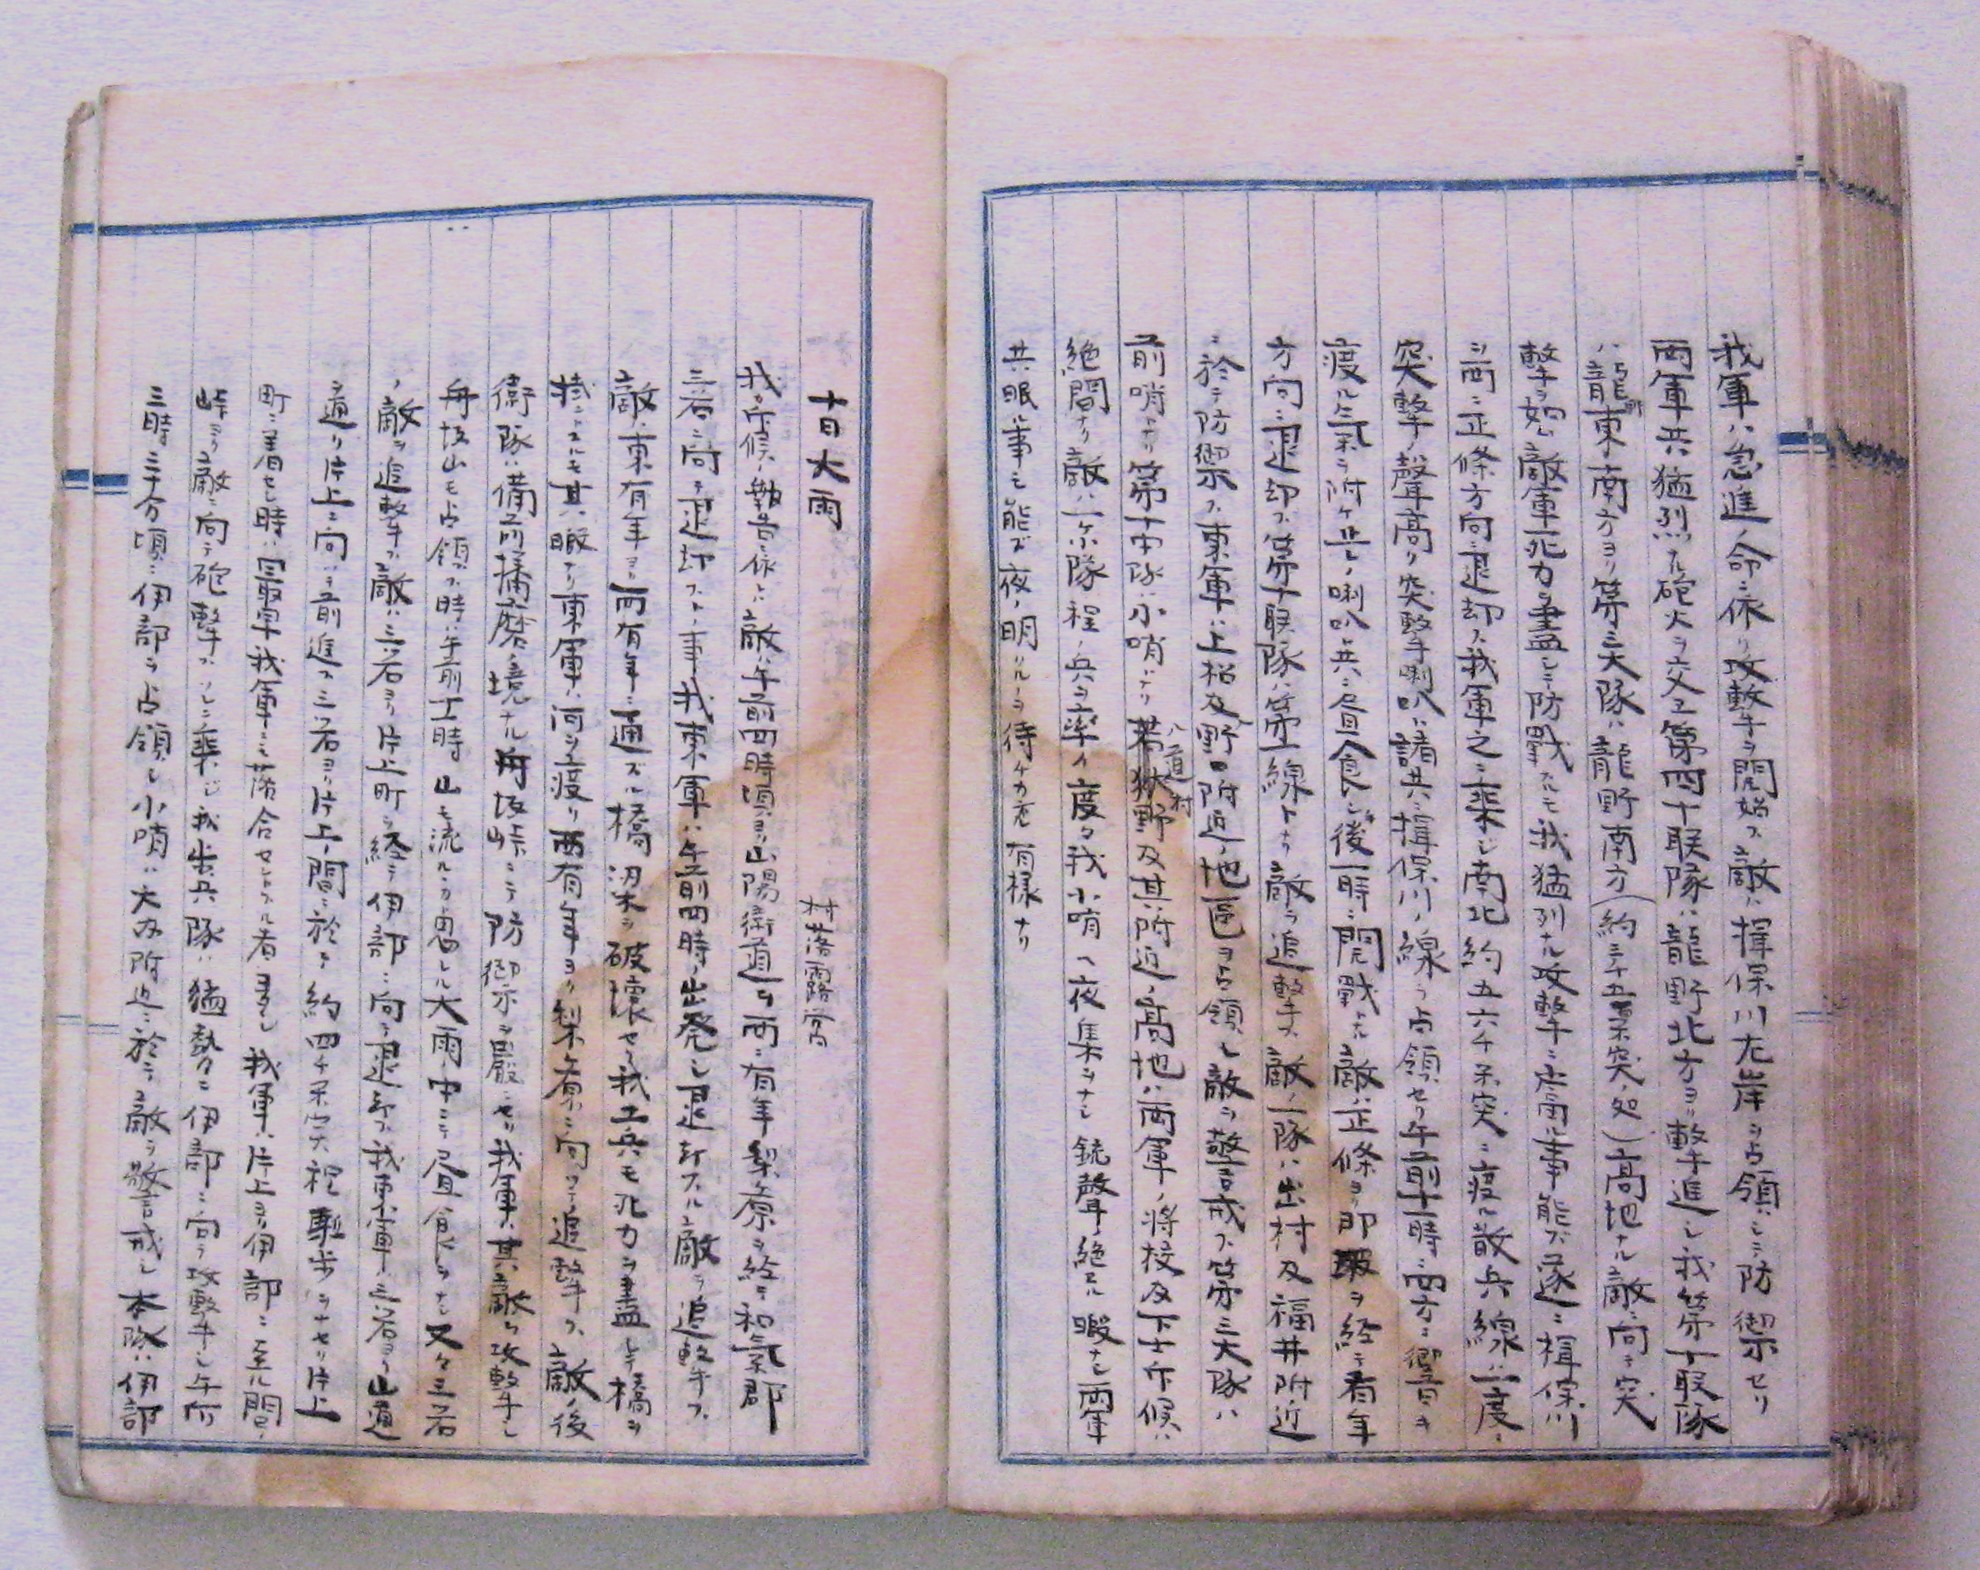 我軍ハ急進ノ命ニ依リ攻撃ヲ開始ス敵ハ揖保川左岸ヲ占領シテ防禦セリ
両軍共ニ猛烈ナル砲火ヲ交エ第四十联隊ハ龍野北方ヨリ撃進シ我第十联隊
ハ龍野町東南方ヨリ第三大隊ハ龍野南方(約三十五米突ノ処)高地ナル敵ニ向テ突
撃ヲ如シ敵軍死力ヲ盡シテ防戰スルモ我猛烈ナル攻撃ニ 事能ズ遂ニ揖保川
ヲ両ニ正條方向ニ退却ス我軍之ニ乗ジ南北約五六千米突ニ渡ル散兵線ハ二度ノ
突撃ノ聲高リ突撃喇叭ト諸共ニ揖保川ノ線ヲ占領セリ午前十一時ニ四方ニ響キ
渡ル氣ヲ附ケ止レノ喇叭ト共ニ昼食シ后後一時ニ開戰セルニ敵ハ正條ヨリ 坂ヲ経テ有年
方向ニ退却ス第十联隊ハ第一線トナリ敵ヲ追撃ス敵ノ一隊ハ出村及福井附近
ニ於テ防禦ス東軍ハ上松及ビ野田附近ノ地区ヲ占領シ敵ヲ警戒ス第三大隊ハ
前哨トナリ第十中隊ハ小哨トナリ若狭野八道村及其附近ノ高地ハ両軍ノ将校及下士斥候ハ
絶間ナリ敵ハ一ケ小隊程ノ兵ヲ率イ度々我小哨ヘ夜集ヲナシ銃聲ノ絶エル暇ナシ両軍
共眠ル事モ能ズ夜ノ明ケルヲ待チカ子有様ナリ
十日大雨
村落露営
我ガ斥候ノ報告ニ依レバ敵ハ午前四時頃ヨリ山陽街道ヲ西ニ有年梨原ヲ経テ和氣郡
三石ニ向テ退却ストノ事我東軍ハ午前四時ノ出発シ退却スル敵ヲ追撃ス
敵ハ東有年ヨリ西有年ニ通ズル橋梁ヲ破壊セリ我工兵モ死力ヲ盡シテ橋ヲ
掛ントスルモ其ノ暇ナリ東軍ハ河ヲ渡リ西有年ヨリ梨ヶ原ニ向ツテ追撃ス敵ノ後
衛隊ハ備前播磨ノ境ナル舟坂峠ニテ防御ヲ嚴ニセリ我軍ハ其敵ヲ攻撃シ
舟坂山モ占領ス時ハ午前十時山モ流ルカト思シル大雨ノ中ニテ昼食ヲナシ又々三石
ノ敵ヲ追撃ス敵ハ三石ヨリ片上町ヲ経テ伊部ニ向テ退却ス我東軍ハ三石ヨリ山道
ヲ通リ片上ニ向ツテ前進ス三石ヨリ片上ノ間ニ於テ約四千米突ノ 駈歩ヲナセリ片上
町ニ着セシ時ハ最早我軍ニテ落合セントスル者 我軍ハ片上ヨリ伊部ニ至ル間ノ
峠ヨリ敵ニ向テ砲撃スルニ乗ジ我歩兵隊ハ猛勢ニ伊部ニ向テ攻撃シ午后
三時三十分頃ニ伊部ヲ占領シ小哨ハ大内附近ニ於テ敵ヲ警戒シ本隊ハ伊部